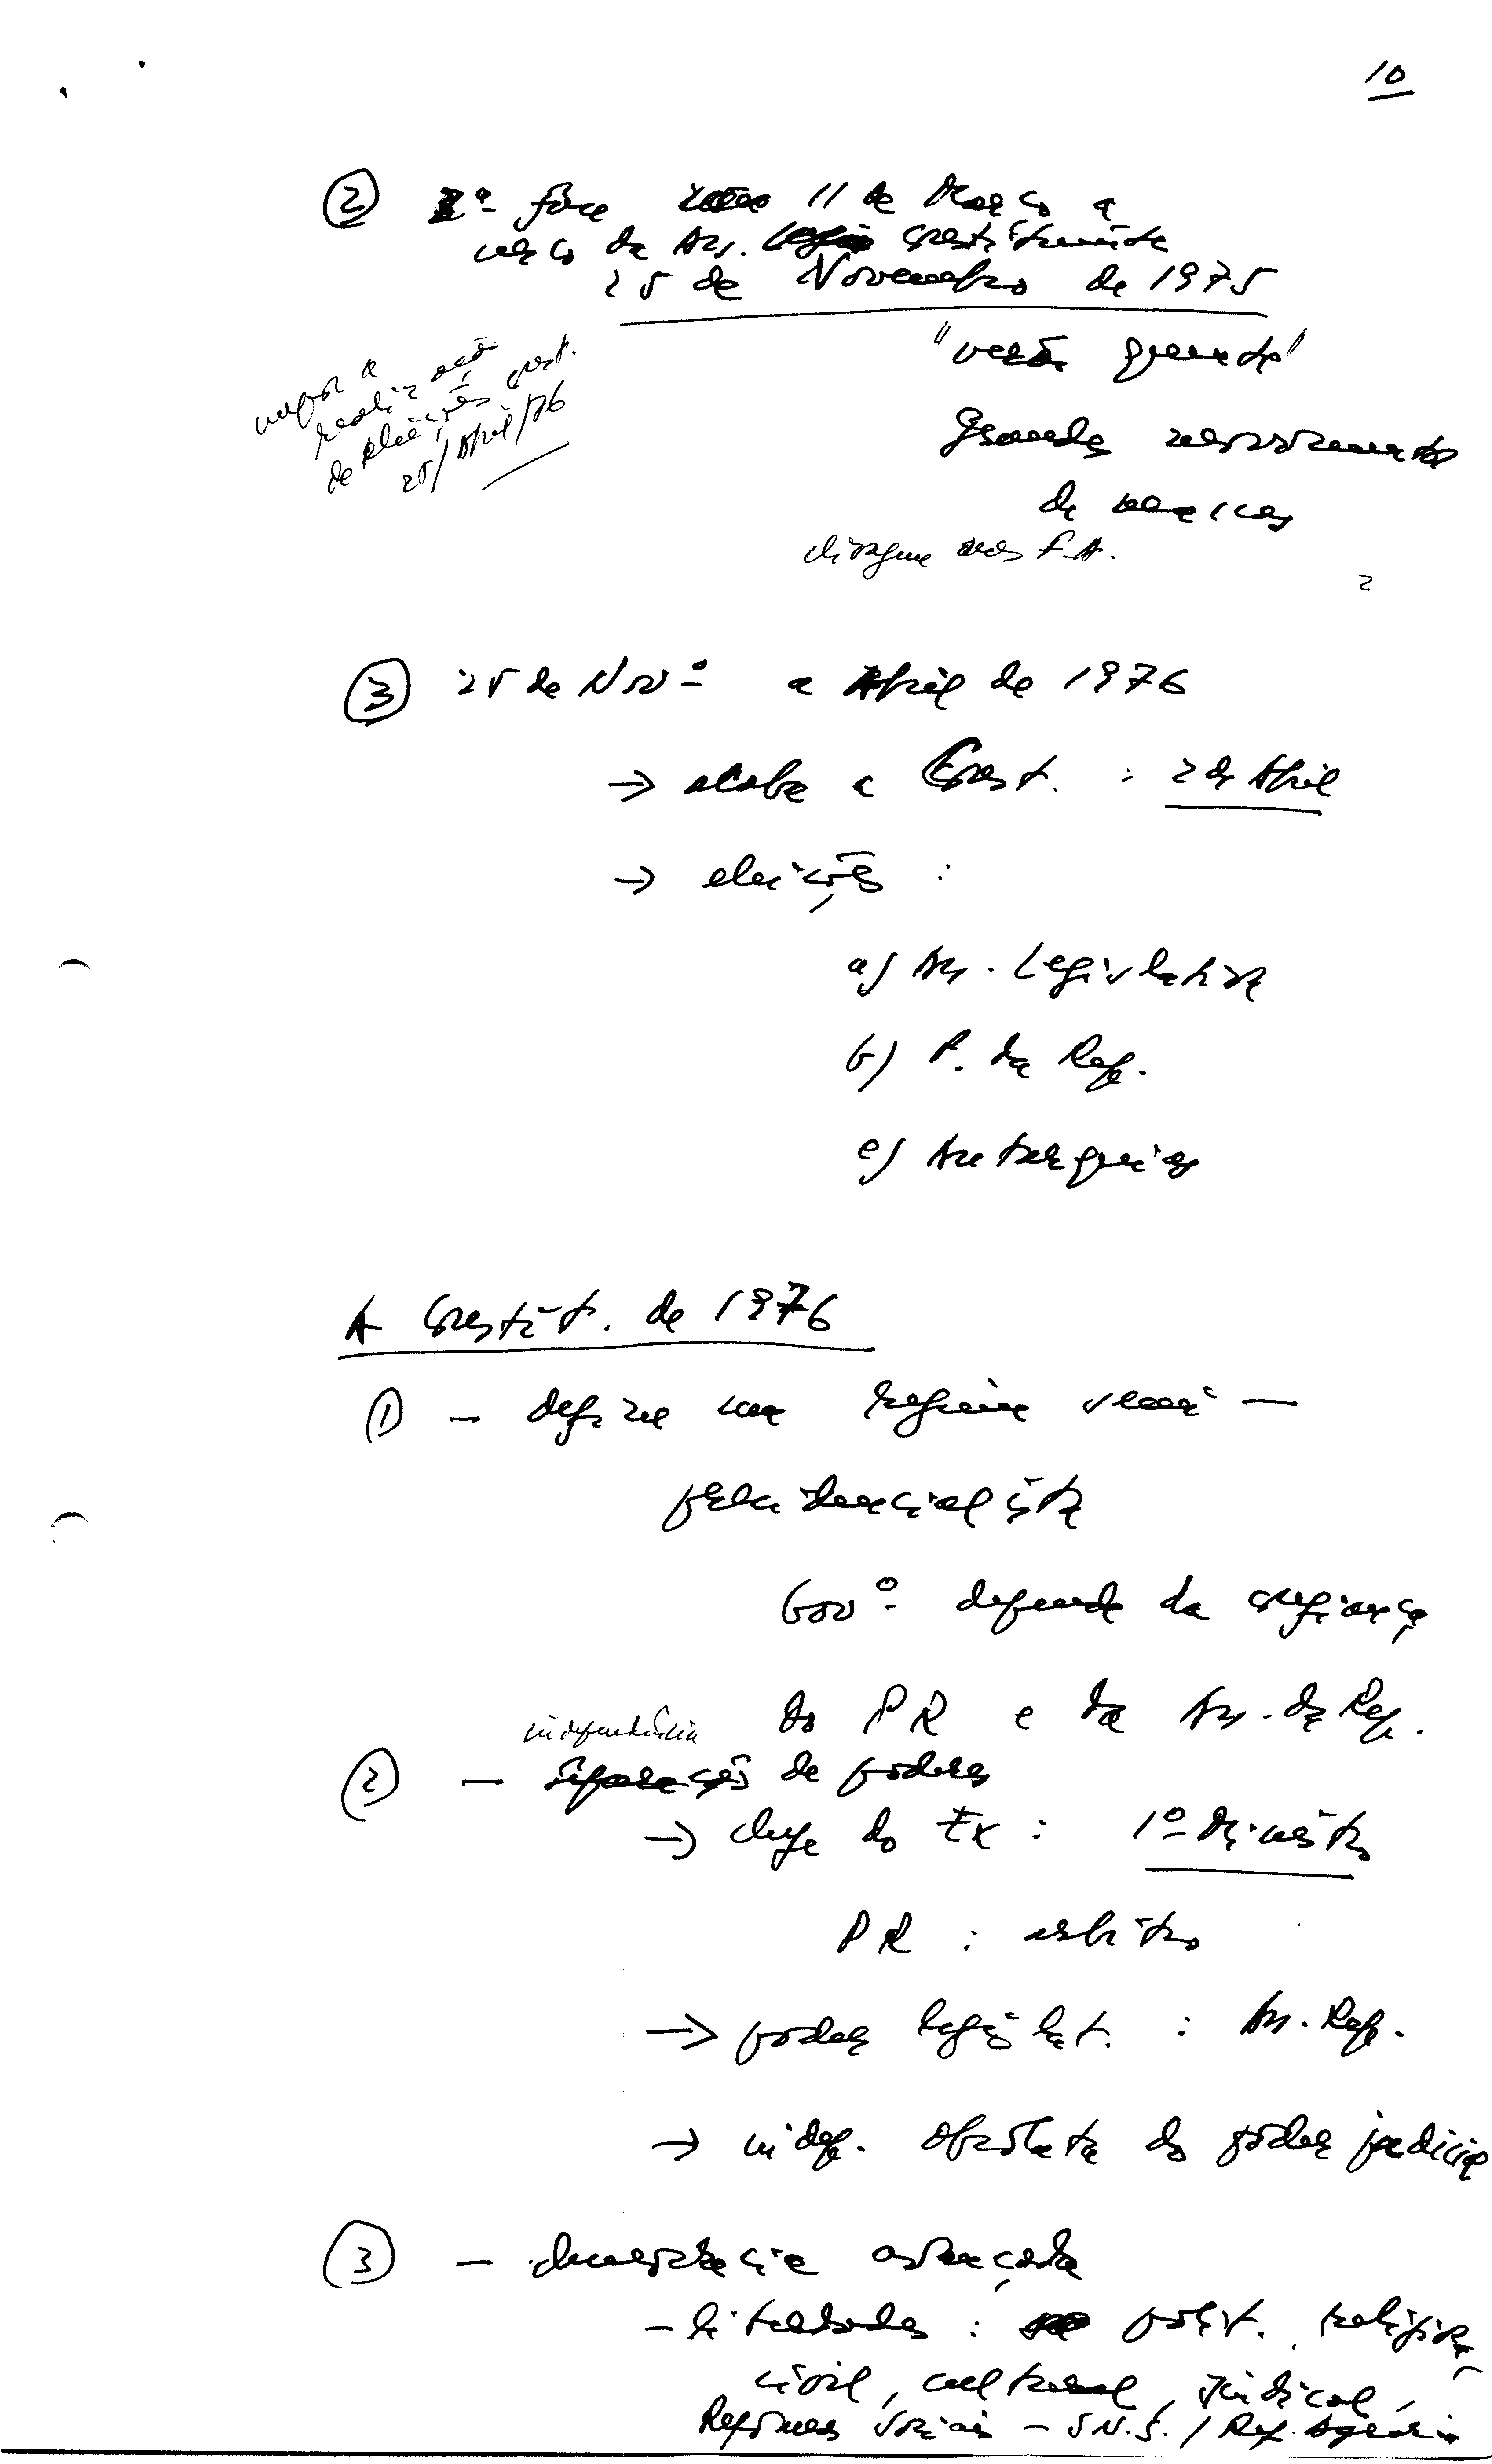 10
② 2ª fase 11 de Março a
cerco da Ass. Constituinte
25 de Novembro de 1975
"verão quente"
impor a
realização
de eleições const.
25/Abril/76
Grandes
de
clivagem nas F.A.
2
③ 25 de Novº a Abril de 1976
→ acaba a Const. : 2 de Abril
→ eleições :
a) Ass. Legislativa
b) P. da Rep.
c) Autarquias
A Constit. de 1976
① - define um regime semi-
presidencialista
Govº depende da confiança
do PR e da Ass. da Rep.
independência
② - separação de poderes
→ chefe do Ex : 1º Ministro
PR : árbitro
→ poder legislat. : Ass. Rep.
→ indep. absoluta do poder judicial
③ - democracia avançada
- liberdades : polít. religiosa,
civil, cultural, sindical,
Reformas sociais - S.N.S. / Ref. Agrária